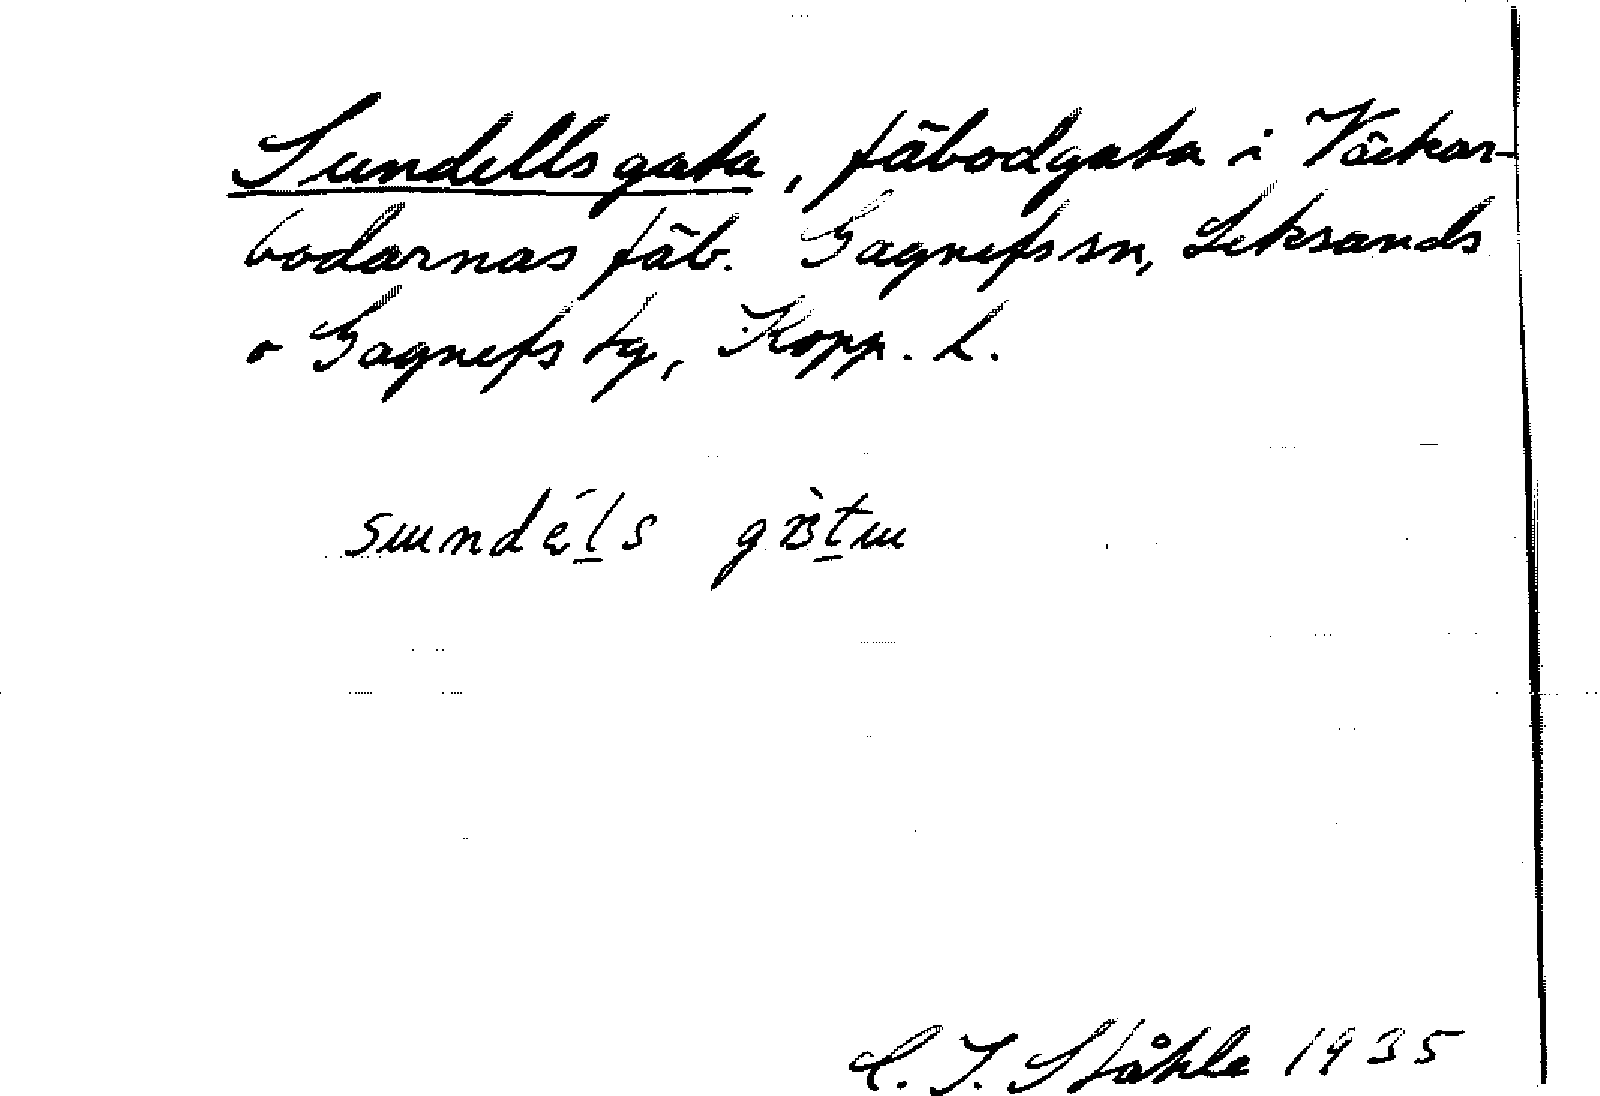 Sundellsgata, fäbodgata i Väckar-
bodarnas fäb. Gagnefs sn, Leksands
o Gagnefs tg, Kopp. L.
C. I. Ståhle 1935